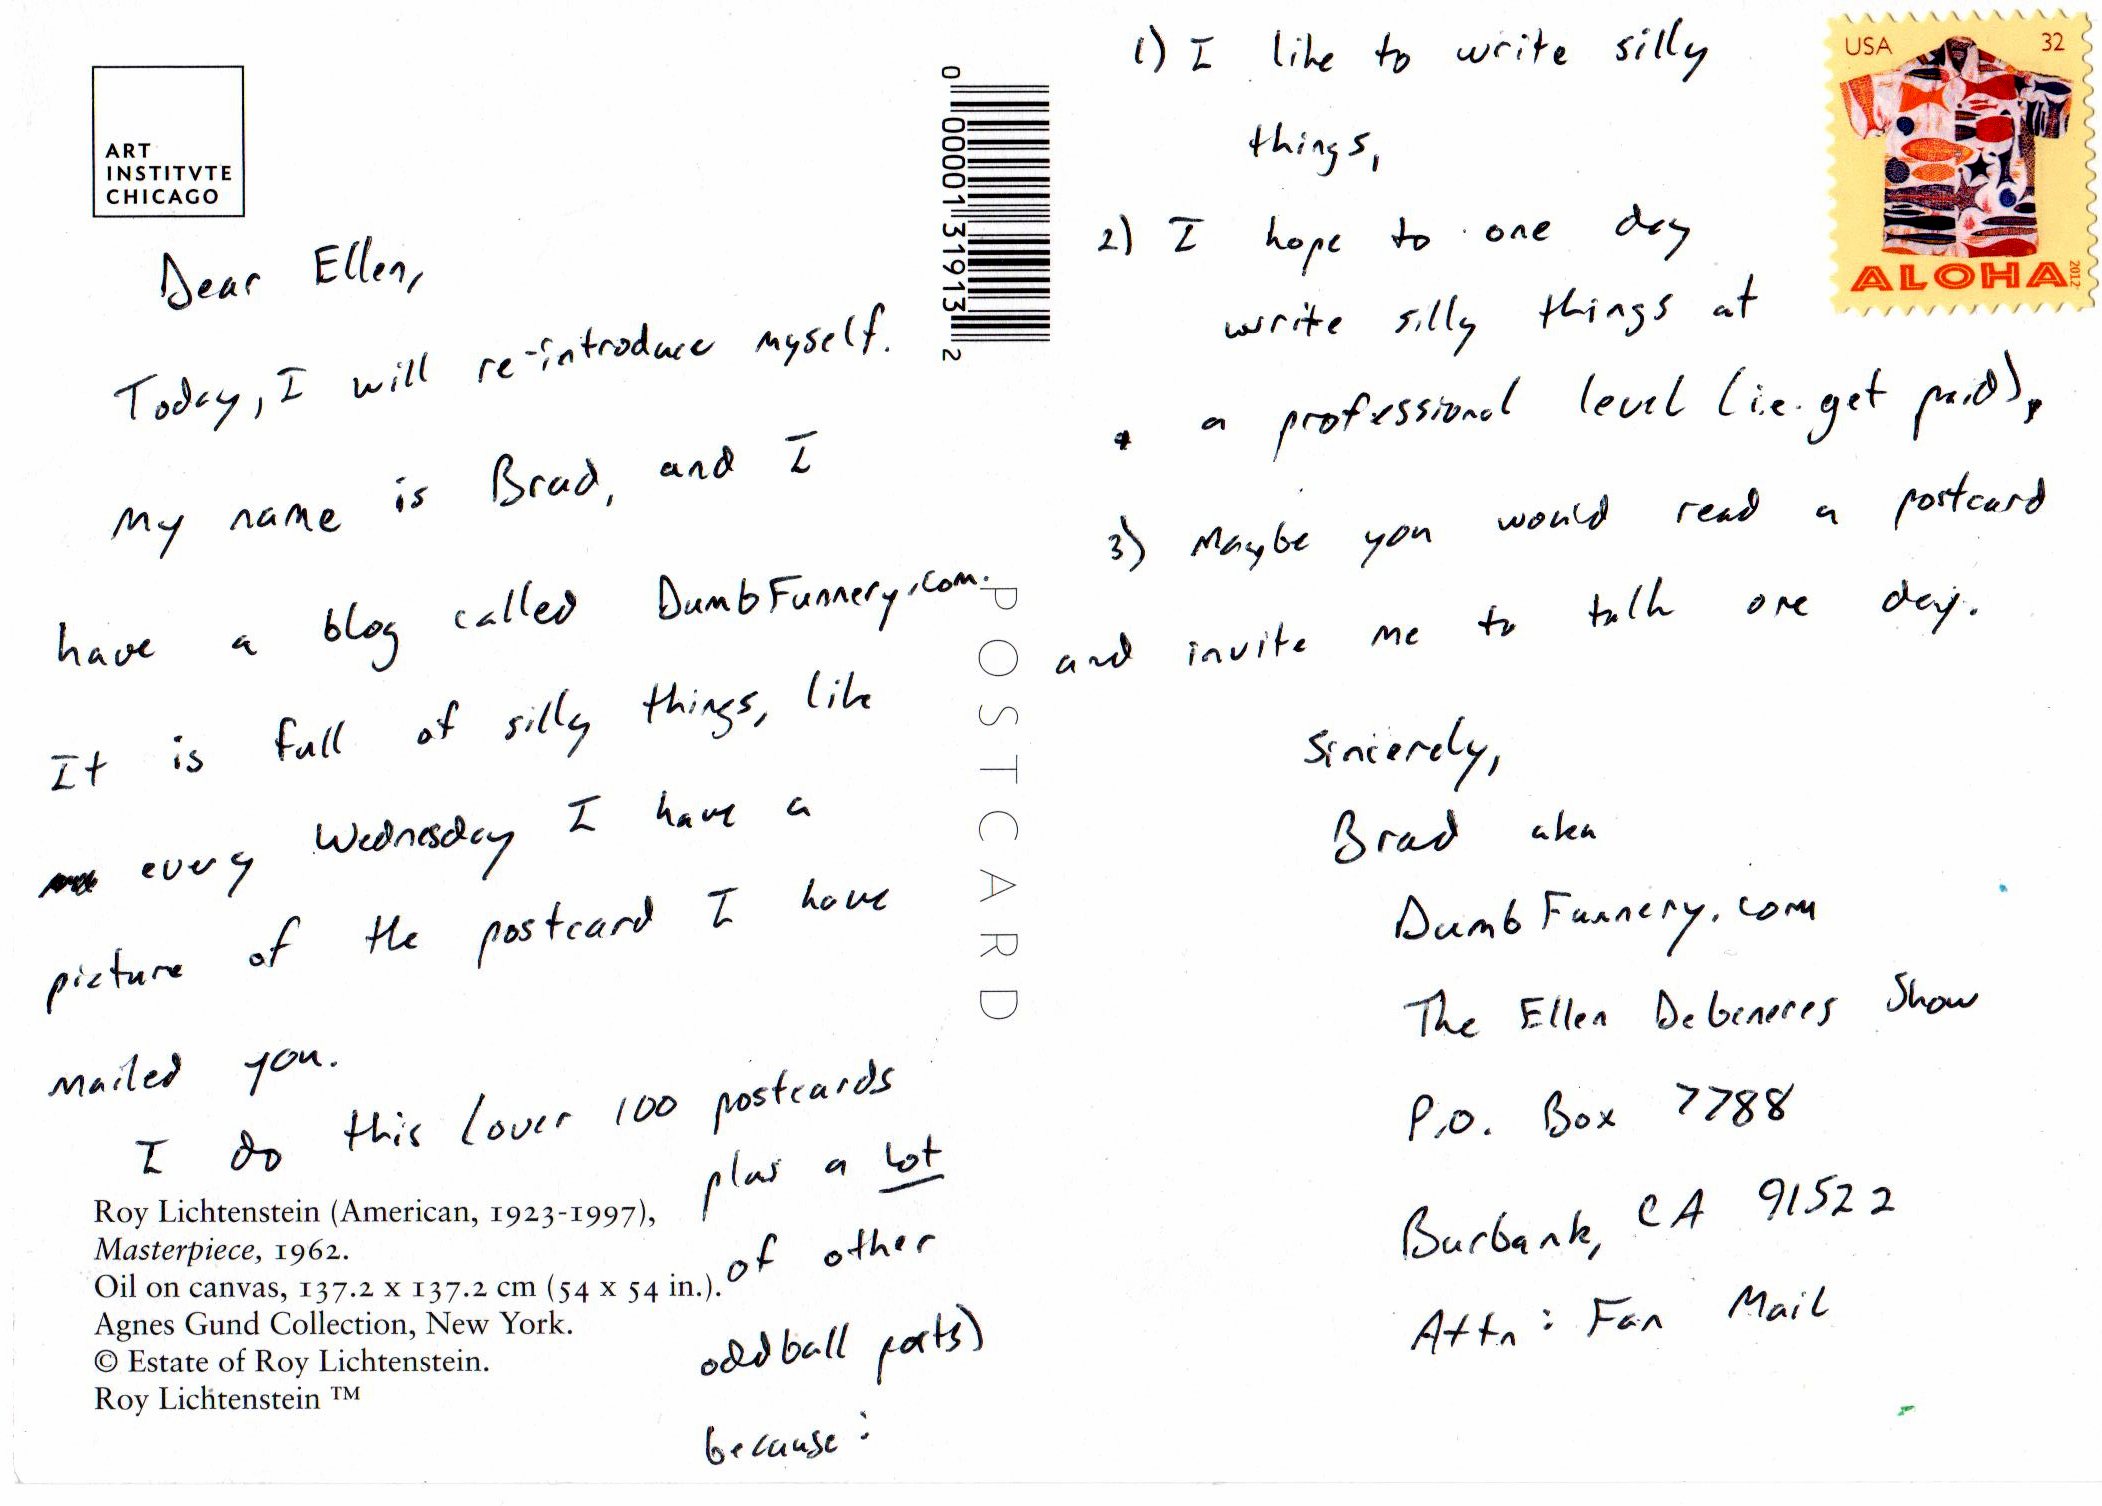 ART
INSTITVTE
CHICAGO
Dear Ellen,
Today, I will re-introduce myself.
My name is Brad, and I
have a blog called DumbFunnery.com.
It is full of silly things, like
every Wednesday I have a
picture of the postcard I have
mailed you.
I do this (over 100 postcards
plus a lot
of other
oddball posts)
because:
Roy Lichtenstein (American, 1923-1997),
Masterpiece, 1962.
Oil on canvas, 137.2 x 137.2 cm (54 x 54 in.).
Agnes Gund Collection, New York.
© Estate of Roy Lichtenstein.
Roy Lichtenstein ™
0 00001 31913 2
POSTCARD
1) I like to write silly
things,
2) I hope to one day
write silly things at
a professional level (i.e. get paid),
3) Maybe you would read a postcard
and invite me to talk one day.
Sincerely,
Brad aka
DumbFunnery.com
The Ellen DeGeneres Show
P.O. Box 7788
Burbank, CA 91522
Attn: Fan Mail
USA 32
ALOHA
2012